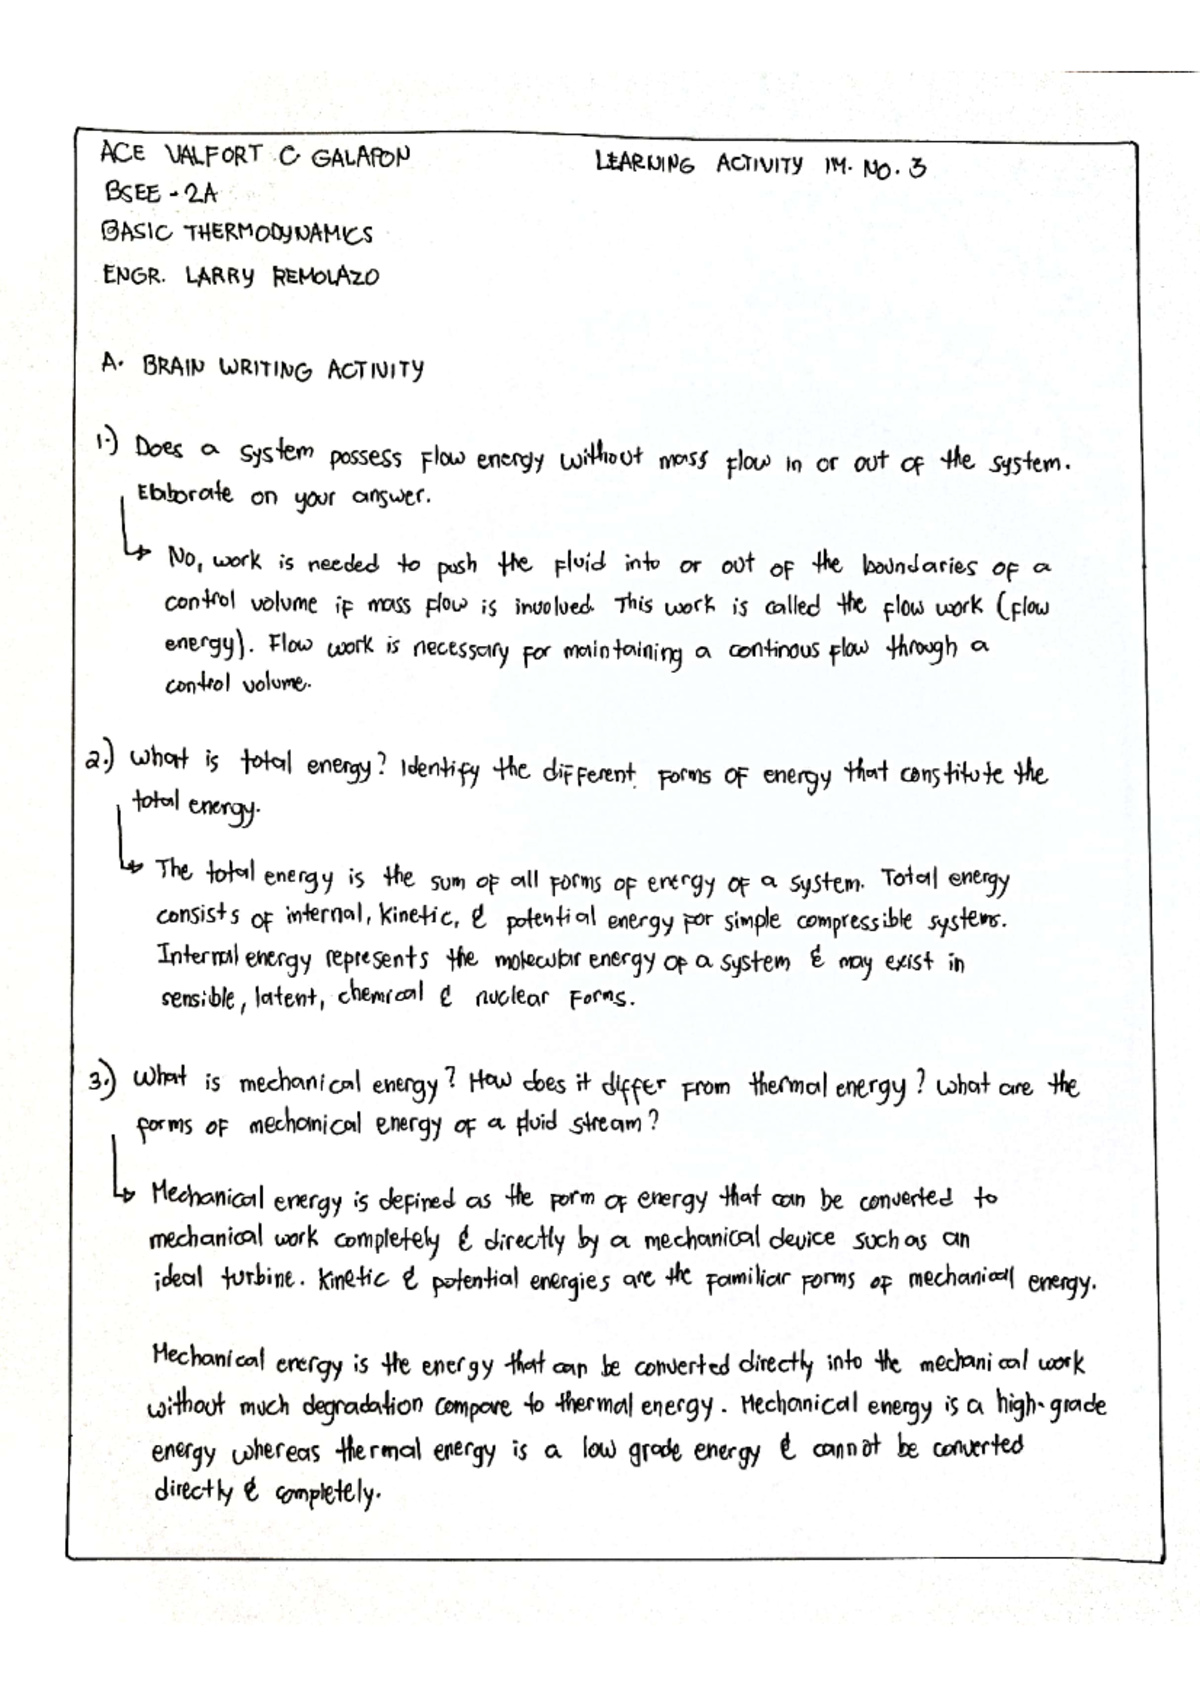 ACE VALFORT C GALAPON
LEARNING ACTIVITY IM. NO. 3
BSEE - 2A
BASIC THERMODYNAMICS
ENGR. LARRY REMOLAZO
A. BRAIN WRITING ACTIVITY
1.) Does a system possess flow energy without mass flow in or out of the system.
Elaborate on your answer.
↳ No, work is needed to push the fluid into or out of the boundaries of a
control volume if mass flow is involved. This work is called the flow work (flow
energy). Flow work is necessary for maintaining a continous flow through a
control volume.
2.) What is total energy? Identify the different forms of energy that constitute the
total energy.
↳ The total energy is the sum of all forms of energy of a system. Total energy
consists of internal, kinetic, & potential energy for simple compressible systems.
Internal energy represents the molecular energy of a system & may exist in
sensible, latent, chemical & nuclear forms.
3.) What is mechanical energy? How does it differ from thermal energy? What are the
forms of mechanical energy of a fluid stream?
↳ Mechanical energy is defined as the form of energy that can be converted to
mechanical work completely & directly by a mechanical device such as an
ideal turbine. Kinetic & potential energies are the familiar forms of mechanical energy.
Mechanical energy is the energy that can be converted directly into the mechanical work
without much degradation compare to thermal energy. Mechanical energy is a high-grade
energy whereas thermal energy is a low grade energy & cannot be converted
directly & completely.